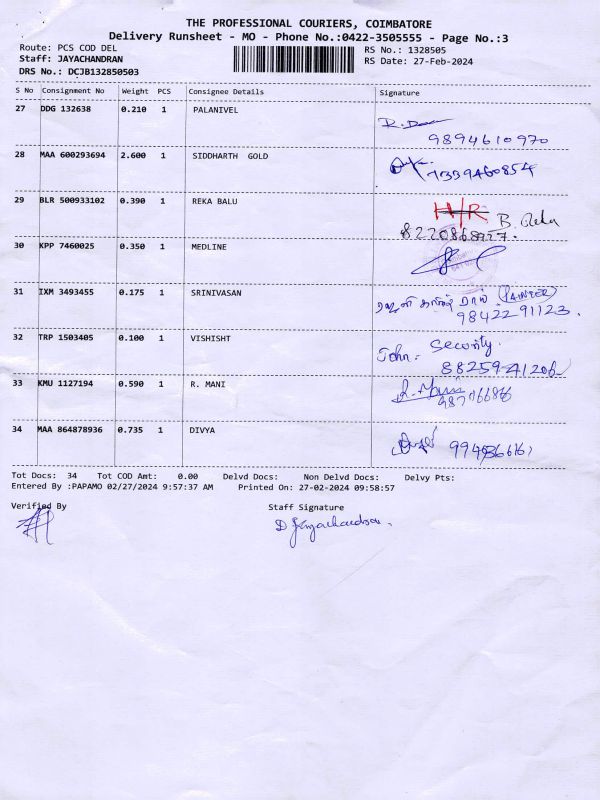 THE PROFESSIONAL COURIERS, COIMBATORE
Delivery Runsheet - MO - Phone No.:0422-3505555 - Page No.:3
Route: PCS COD DEL
RS No.: 1328505
Staff: JAYACHANDRAN
RS Date: 27-Feb-2024
DRS No.: DCJB132850503
S No Consignment No Weight PCS Consignee Details Signature
27 DDG 132638 0.210 1 PALANIVEL
9894610970
28 MAA 600293694 2.600 1 SIDDHARTH GOLD
7339460854
29 BLR 500933102 0.390 1 REKA BALU
H/R B. Reka
8220868927.
30 KPP 7460025 0.350 1 MEDLINE
31 IXM 3493455 0.175 1 SRINIVASAN
(PAINTER)
98422 91123.
32 TRP 1503405 0.100 1 VISHISHT
John. Security.
8825941206
33 KMU 1127194 0.590 1 R. MANI
R. Mani
34 MAA 864878936 0.735 1 DIVYA
Tot Docs: 34 Tot COD Amt: 0.00 Delvd Docs: Non Delvd Docs: Delvy Pts:
Entered By :PAPAMO 02/27/2024 9:57:37 AM Printed On: 27-02-2024 09:58:57
Verified By Staff Signature
D Jayachandran.